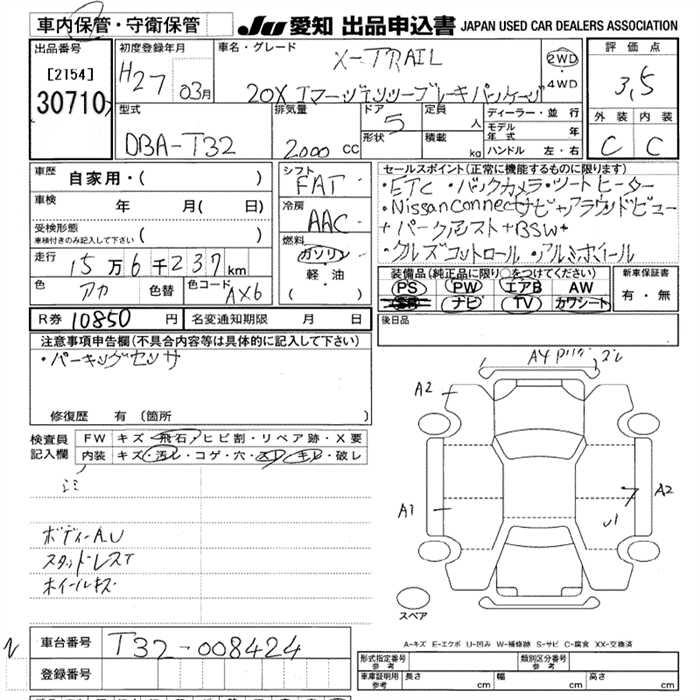 車内保管・守衛保管 JU 愛知 出品申込書 JAPAN USED CAR DEALERS ASSOCIATION
出品番号 初度登録年月 車名・グレード 評価点
[2154] H27 03月 X-TRAIL 2WD 3,5
30710 20X エマージェンシーブレーキパッケージ ・4WD
型式 排気量 ドア 5 定員 人 ディーラー・並行 外装 内装
モデル年式 年
DBA-T32 2000 cc 形状 積載 kg ハンドル 左・右 C C
車歴 自家用・( ) シフト FAT セールスポイント(正常に機能するものに限ります)
車検 年 月( 日) 冷房 AAC ・ETC ・バックカメラ・シートヒーター
・Nissanconnectナビ+アラウンドビュー
受検形態 車検付きのみ記入して下さい ( ) 燃料 ガソリン +パークアシスト+BSW+
・クルーズコントロール・アルミホイール
走行 15万6千237km ・軽・油 ( ) 装備品(純正品に限り○をつけてください) 新車保証書
色 アカ 色替 色コード AX6 PS PW エアB AW 有・無
SR ナビ TV カワシート
R券 10850 円 名変通知期限 月 日 後日品
注意事項申告欄(不具合内容等は具体的に記入して下さい)
・パーキングセンサ
修復歴 有 (箇所
検査員記入欄 FW キズ・飛石・ヒビ割・リペア跡・X要
内装 キズ・汚レ・コゲ・穴・スレ・キレ・破レ
A2
A1 A2
U1
ボディーA.U
スタッドレスT
ホイールキズ
スペア
A-キズ E-エクボ U-凹み W-補修跡 S-サビ C-腐食 XX-交換済
車台番号 T32-008424
登録番号
形式指定番号 参考 類別区分番号 参考
車庫証明用 参考 長さ cm 幅 cm 高さ cm